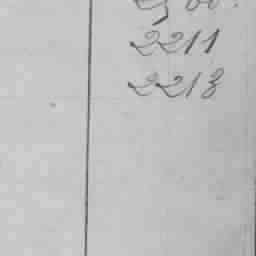 2211
2213